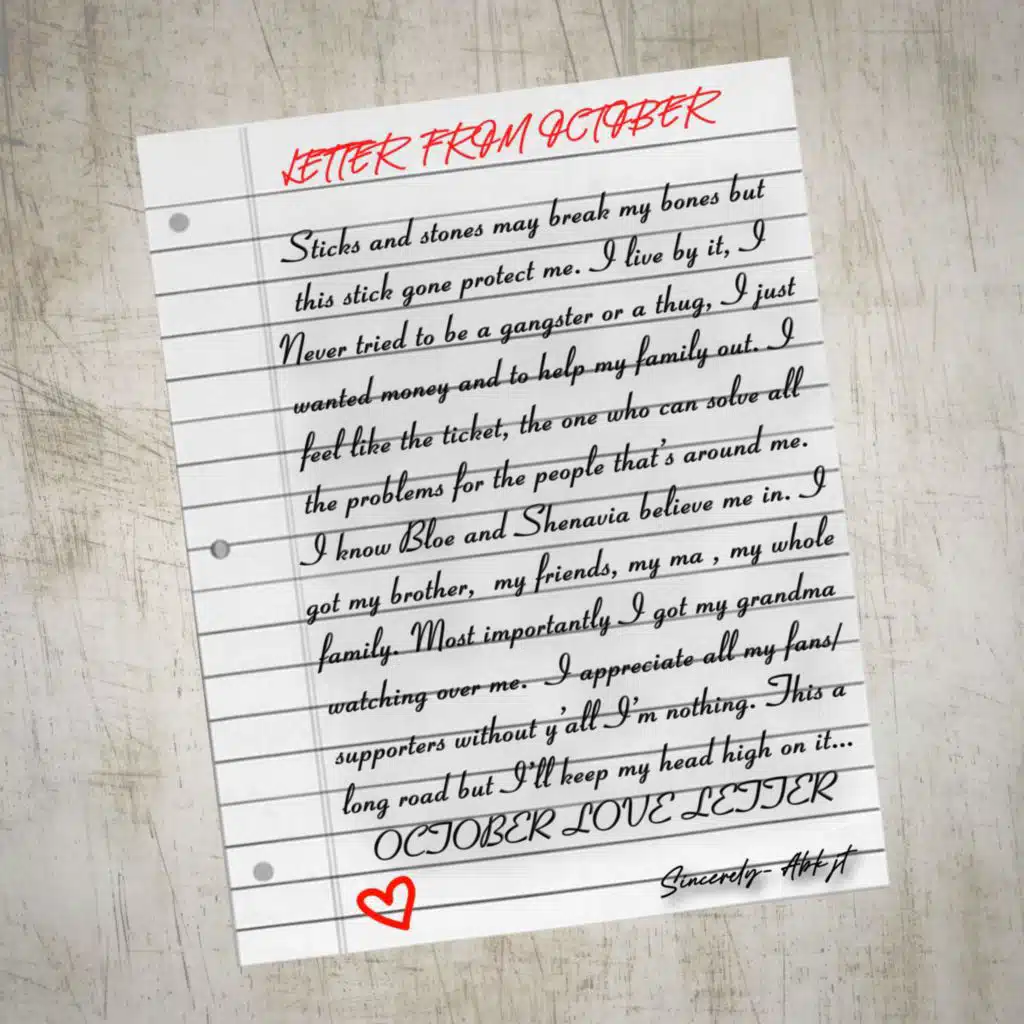 LETTER FROM OCTOBER
Sticks and stones may break my bones but
this stick gone protect me. I live by it, I
Never tried to be a gangster or a thug, I just
wanted money and to help my family out. I
feel like the ticket, the one who can solve all
the problems for the people that's around me.
I know Bloe and Shenavia believe me in. I
got my brother, my friends, my ma , my whole
family. Most importantly I got my grandma
watching over me. I appreciate all my fans/
supporters without y'all I'm nothing. This a
long road but I'll keep my head high on it...
OCTOBER LOVE LETTER
Sincerely- Abk jt